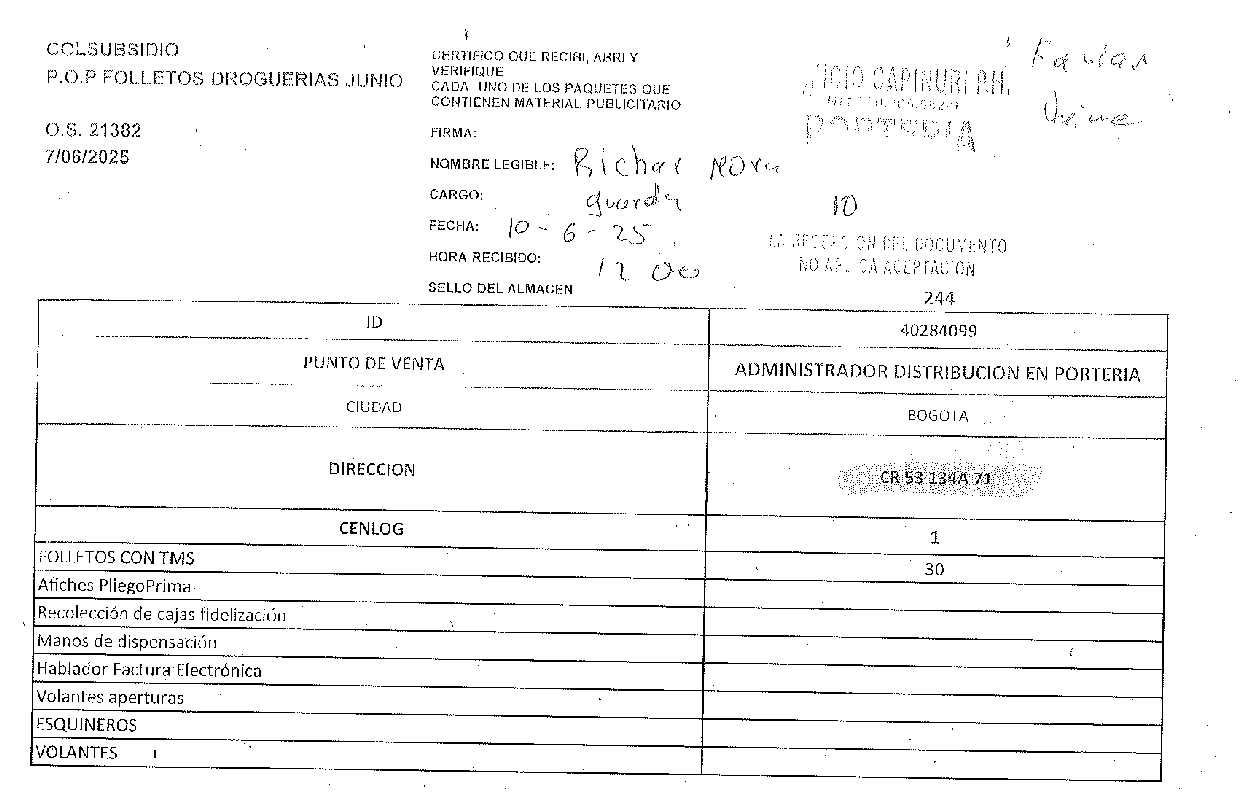 COLSUBSIDIO
P.O.P FOLLETOS DROGUERIAS JUNIO
O.S. 21382
7/06/2025
CERTIFICO QUE RECIBI, ABRI Y
VERIFIQUE
CADA UNO DE LOS PAQUETES QUE
CONTIENEN MATERIAL PUBLICITARIO
FIRMA:
NOMBRE LEGIBLE: Richar Mora
CARGO: guarda
FECHA: 10-6-25
HORA RECIBIDO: 12 00
SELLO DEL ALMACEN
CAPINURI P.H.
PORTERIA
10
LA RECEPCION DEL DOCUMENTO
NO APLICA ACEPTACION
244
ID 40284099
PUNTO DE VENTA ADMINISTRADOR DISTRIBUCION EN PORTERIA
CIUDAD BOGOTA
DIRECCION CR 53 134A 71
CENLOG 1
FOLLETOS CON TMS 30
Afiches PliegoPrima
Recolección de cajas fidelización
Manos de dispensación
Hablador Factura Electrónica
Volantes aperturas
ESQUINEROS
VOLANTES